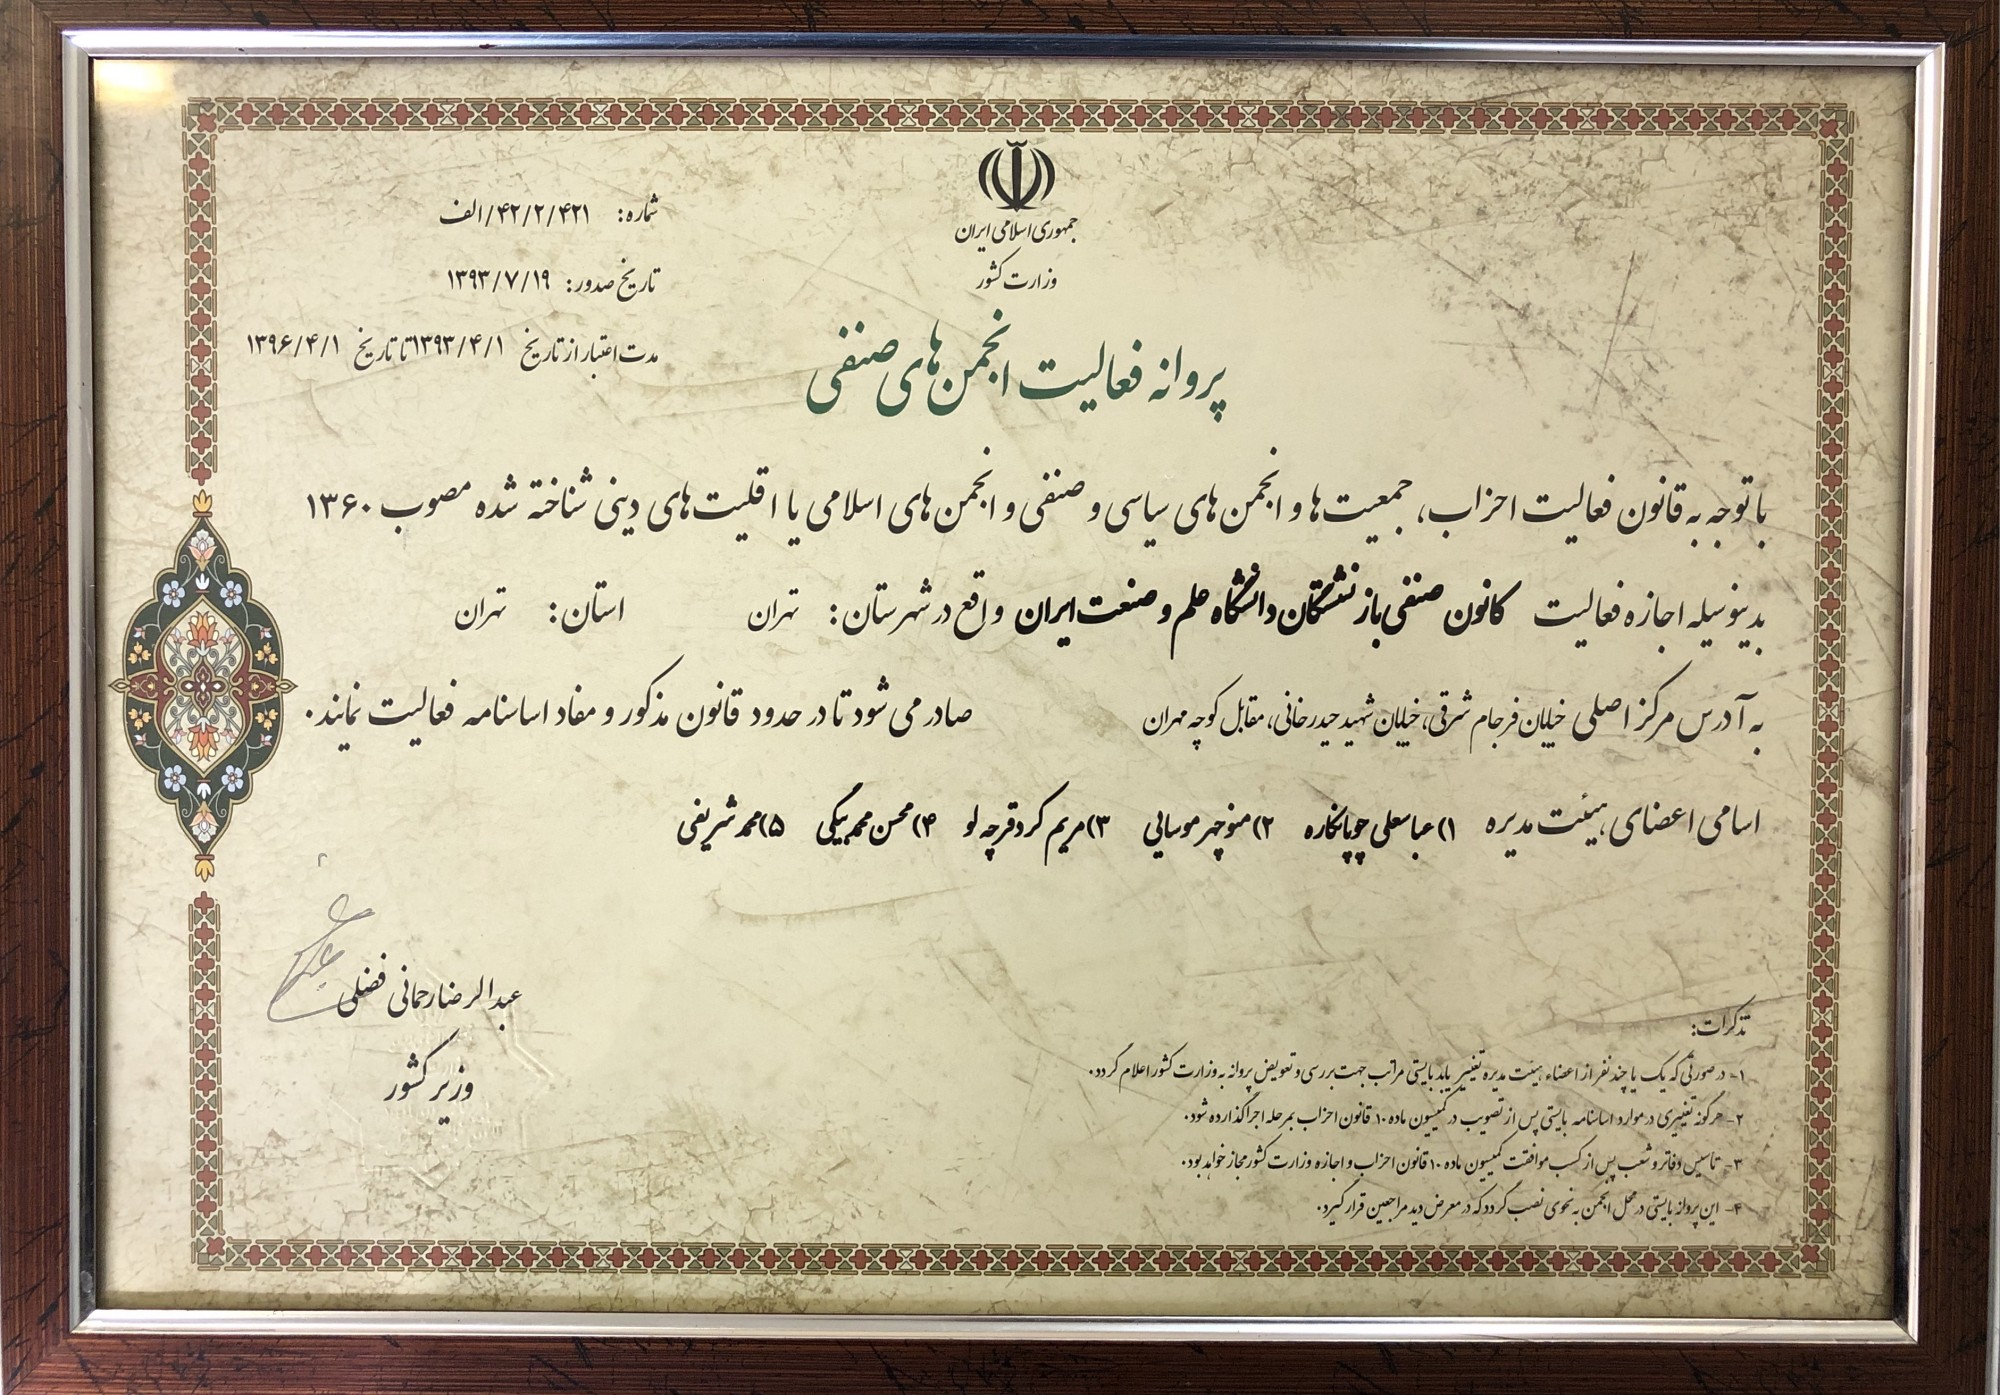 جمهوری اسلامی ایران
وزارت کشور
شماره: ۴۲/۲/۴۲۱/الف
تاریخ صدور: ۱۳۹۳/۷/۱۹
مدت اعتبار از تاریخ ۱۳۹۳/۴/۱ تا تاریخ ۱۳۹۶/۴/۱
پروانه فعالیت انجمن‌های صنفی
با توجه به قانون فعالیت احزاب، جمعیت‌ها و انجمن‌های سیاسی و صنفی و انجمن‌های اسلامی یا اقلیت‌های دینی شناخته شده مصوب ۱۳۶۰
بدینوسیله اجازه فعالیت کانون صنفی بازنشستگان دانشگاه علم و صنعت ایران واقع در شهرستان: تهران استان: تهران
به آدرس مرکز اصلی خیابان فرجام شرقی، خیابان شهید حیدرخانی، مقابل کوچه مهران صادر می شود تا در حدود قانون مذکور و مفاد اساسنامه فعالیت نمایند.
اسامی اعضای هیئت مدیره ۱) عباسعلی چوپانکاره ۲) منوچهر موسایی ۳) مریم کردقرچه لو ۴) محسن محمدبیگی ۵) محمد شریفی
عبدالرضا رحمانی فضلی
وزیر کشور
تذکرات:
۱- در صورتی که یک یا چند نفر از اعضاء هیئت مدیره تغییر یابد بایستی مراتب جهت بررسی و تعویض پروانه به وزارت کشور اعلام گردد.
۲- هرگونه تغییری در موارد اساسنامه بایستی پس از تصویب در کمیسیون ماده ۱۰ قانون احزاب بمرحله اجرا گذارده شود.
۳- تاسیس دفاتر و شعب پس از کسب موافقت کمیسیون ماده ۱۰ قانون احزاب و اجازه وزارت کشور مجاز خواهد بود.
۴- این پروانه بایستی در محل انجمن به نحوی نصب گردد که در معرض دید مراجعین قرار گیرد.